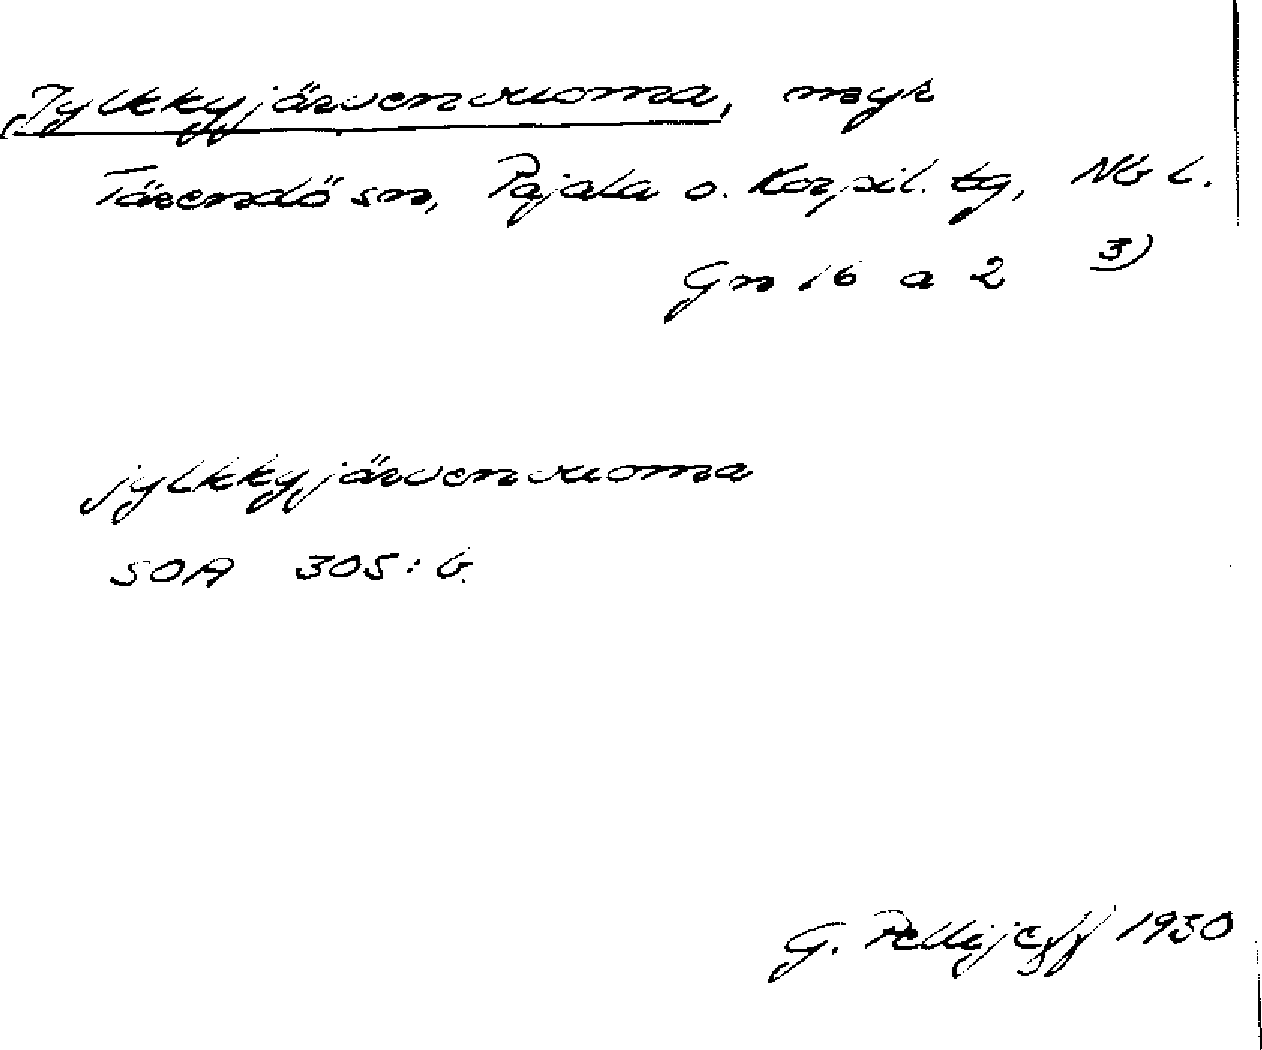 Jylkkyjärvenvuoma, myr
Tärendö sn, Pajala o. Korpil. tg, Nb L.
Gn 16 a 2 3)
jylkkyjärvenvuoma
SOA 305: 6.
G. Pellijeff 1950